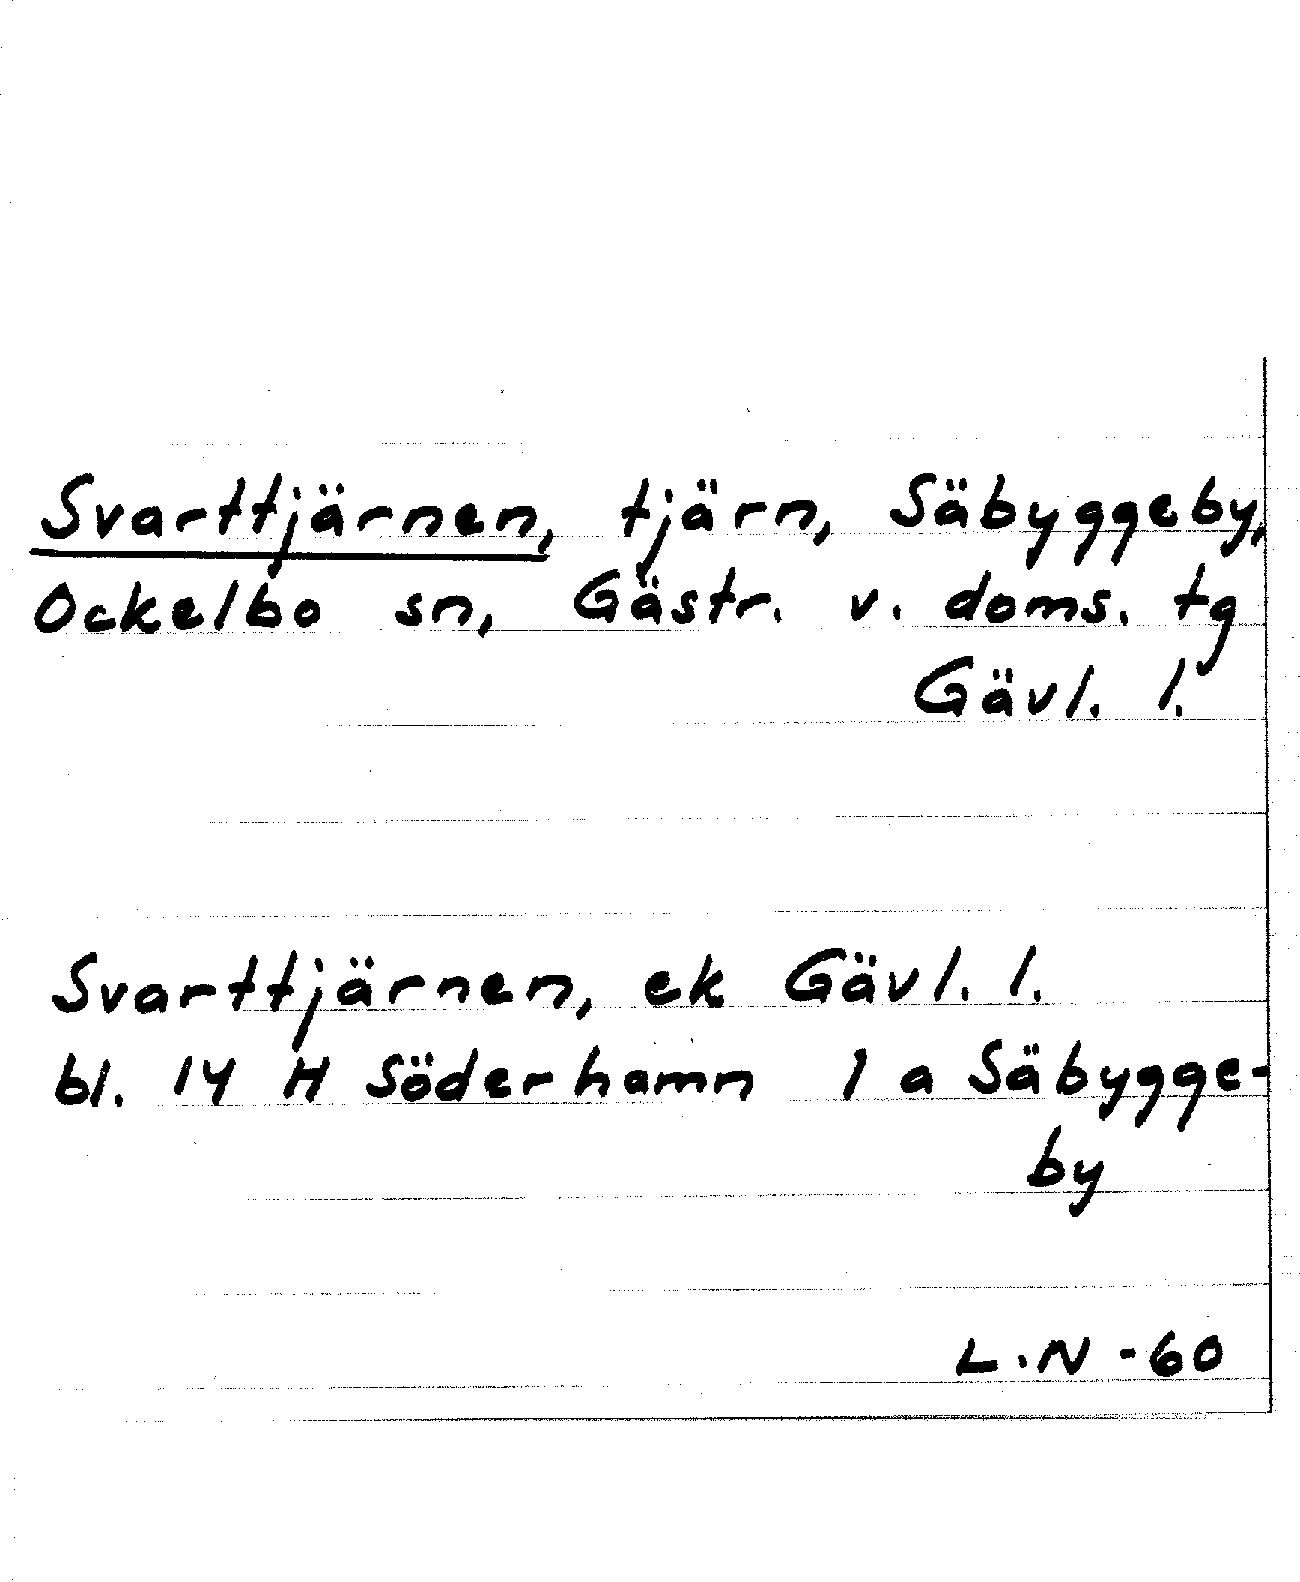 Svarttjärnen, tjärn, Säbyggeby,
Ockelbo sn, Gästr. v. doms. tg
Gävl. l.
Svarttjärnen, ek Gävl. l.
bl. 14 H Söderhamn 1 a Säbygge-
by
L.N -60